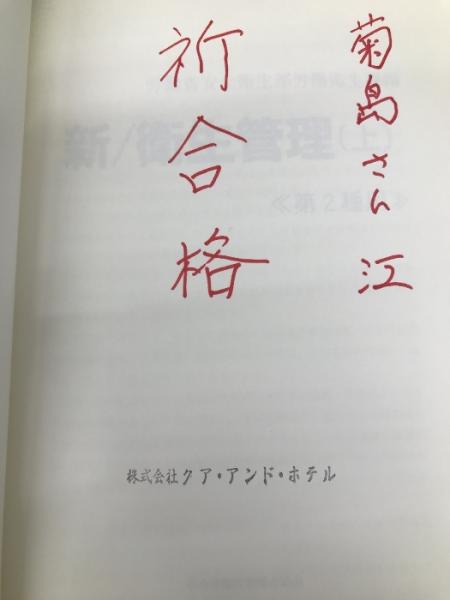 菊島さん江
祈合格
新/衛生管理(上)
≪第2種用≫
株式会社クア・アンド・ホテル